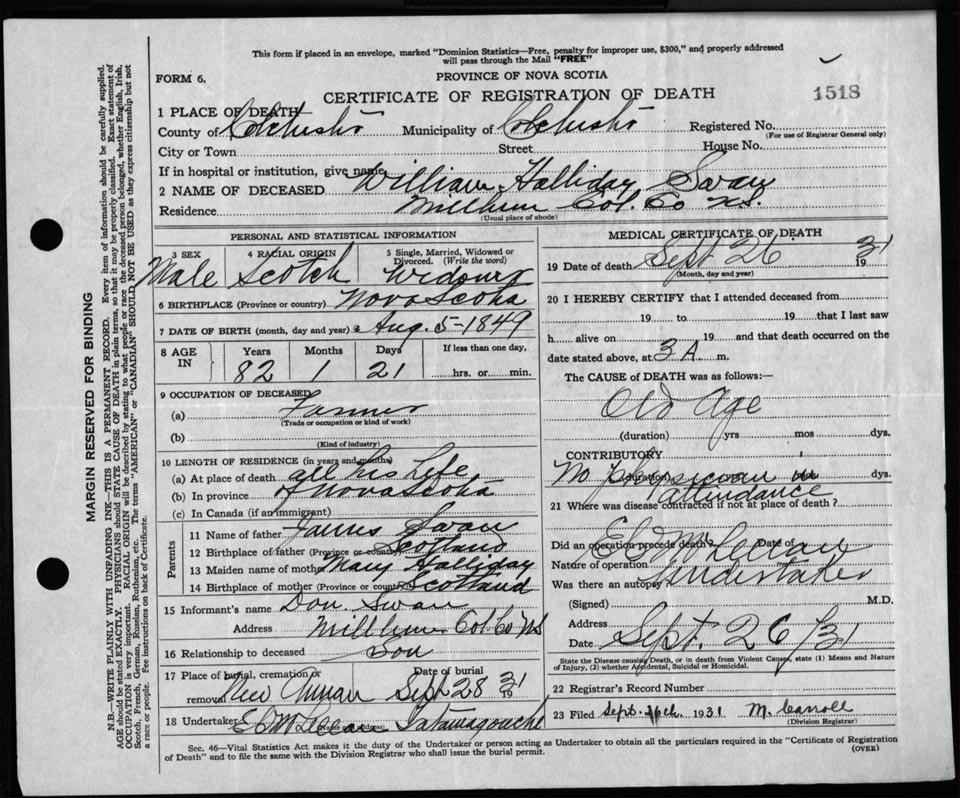 This form if placed in an envelope, marked "Dominion Statistics—Free, penalty for improper use, $300," and properly addressed
will pass through the Mail "FREE"
FORM 6.
PROVINCE OF NOVA SCOTIA
CERTIFICATE OF REGISTRATION OF DEATH
1518
1 PLACE OF DEATH
County of Colchester Municipality of Colchester Registered No.
(For use of Registrar General only)
City or Town Street House No.
If in hospital or institution, give name
2 NAME OF DECEASED William Halliday Swan
Residence Col. Co N.S.
(Usual place of abode)
PERSONAL AND STATISTICAL INFORMATION
3 SEX 4 RACIAL ORIGIN 5 Single, Married, Widowed or
Divorced. (Write the word)
Male Scotch Widower
6 BIRTHPLACE (Province or country) Nova Scotia
7 DATE OF BIRTH (month, day and year) Aug. 5-1849
8 AGE IN Years Months Days If less than one day,
82 1 21 hrs. or min.
9 OCCUPATION OF DECEASED
(a) Farmer
(Trade or occupation or kind of work)
(b)
(Kind of industry)
10 LENGTH OF RESIDENCE (in years and months)
(a) At place of death all his Life
(b) In province of Nova Scotia
(c) In Canada (if an immigrant)
Parents
11 Name of father James Swan
12 Birthplace of father (Province or country) Scotland
13 Maiden name of mother Mary Halliday
14 Birthplace of mother (Province or country) Scotland
15 Informant's name Don. Swan
Address Col Co NS
16 Relationship to deceased Son
17 Place of burial, cremation or Date of burial
removal New Annan Sept 28 1931
18 Undertaker Tatamagouche
MEDICAL CERTIFICATE OF DEATH
19 Date of death Sept 26 1931
(Month, day and year)
20 I HEREBY CERTIFY that I attended deceased from
19 to 19 that I last saw
h alive on 19 and that death occurred on the
date stated above, at 3 A m.
The CAUSE of DEATH was as follows:—
Old Age
(duration) yrs mos dys.
CONTRIBUTORY
No physician in (duration) dys.
attendance
21 Where was disease contracted if not at place of death?
Did an operation precede death? Date of
Nature of operation
Was there an autopsy Undertaker
(Signed) M.D.
Address
Date Sept. 26/31
State the Disease causing Death, or in death from Violent Causes, state (1) Means and Nature
of Injury, (2) whether Accidental, Suicidal or Homicidal.
22 Registrar's Record Number
23 Filed Sept. 26th. 1931 M. Carroll
(Division Registrar)
Sec. 46—Vital Statistics Act makes it the duty of the Undertaker or person acting as Undertaker to obtain all the particulars required in the "Certificate of Registration
of Death" and to file the same with the Division Registrar who shall issue the burial permit.
(OVER)
MARGIN RESERVED FOR BINDING
N.B.—WRITE PLAINLY WITH UNFADING INK—THIS IS A PERMANENT RECORD. Every item of information should be carefully supplied.
AGE should be stated EXACTLY. PHYSICIANS should STATE CAUSE OF DEATH in plain terms, so that it may be properly classified. Exact statement of
OCCUPATION is very important. RACIAL ORIGIN will be described by stating to what people or race the deceased person belonged, whether English, Irish,
Scotch, French, German, Russian, Ruthenian, etc. The terms "AMERICAN" or "CANADIAN" SHOULD NOT BE USED as they express citizenship but not
a race or people. See instructions on back of Certificate.